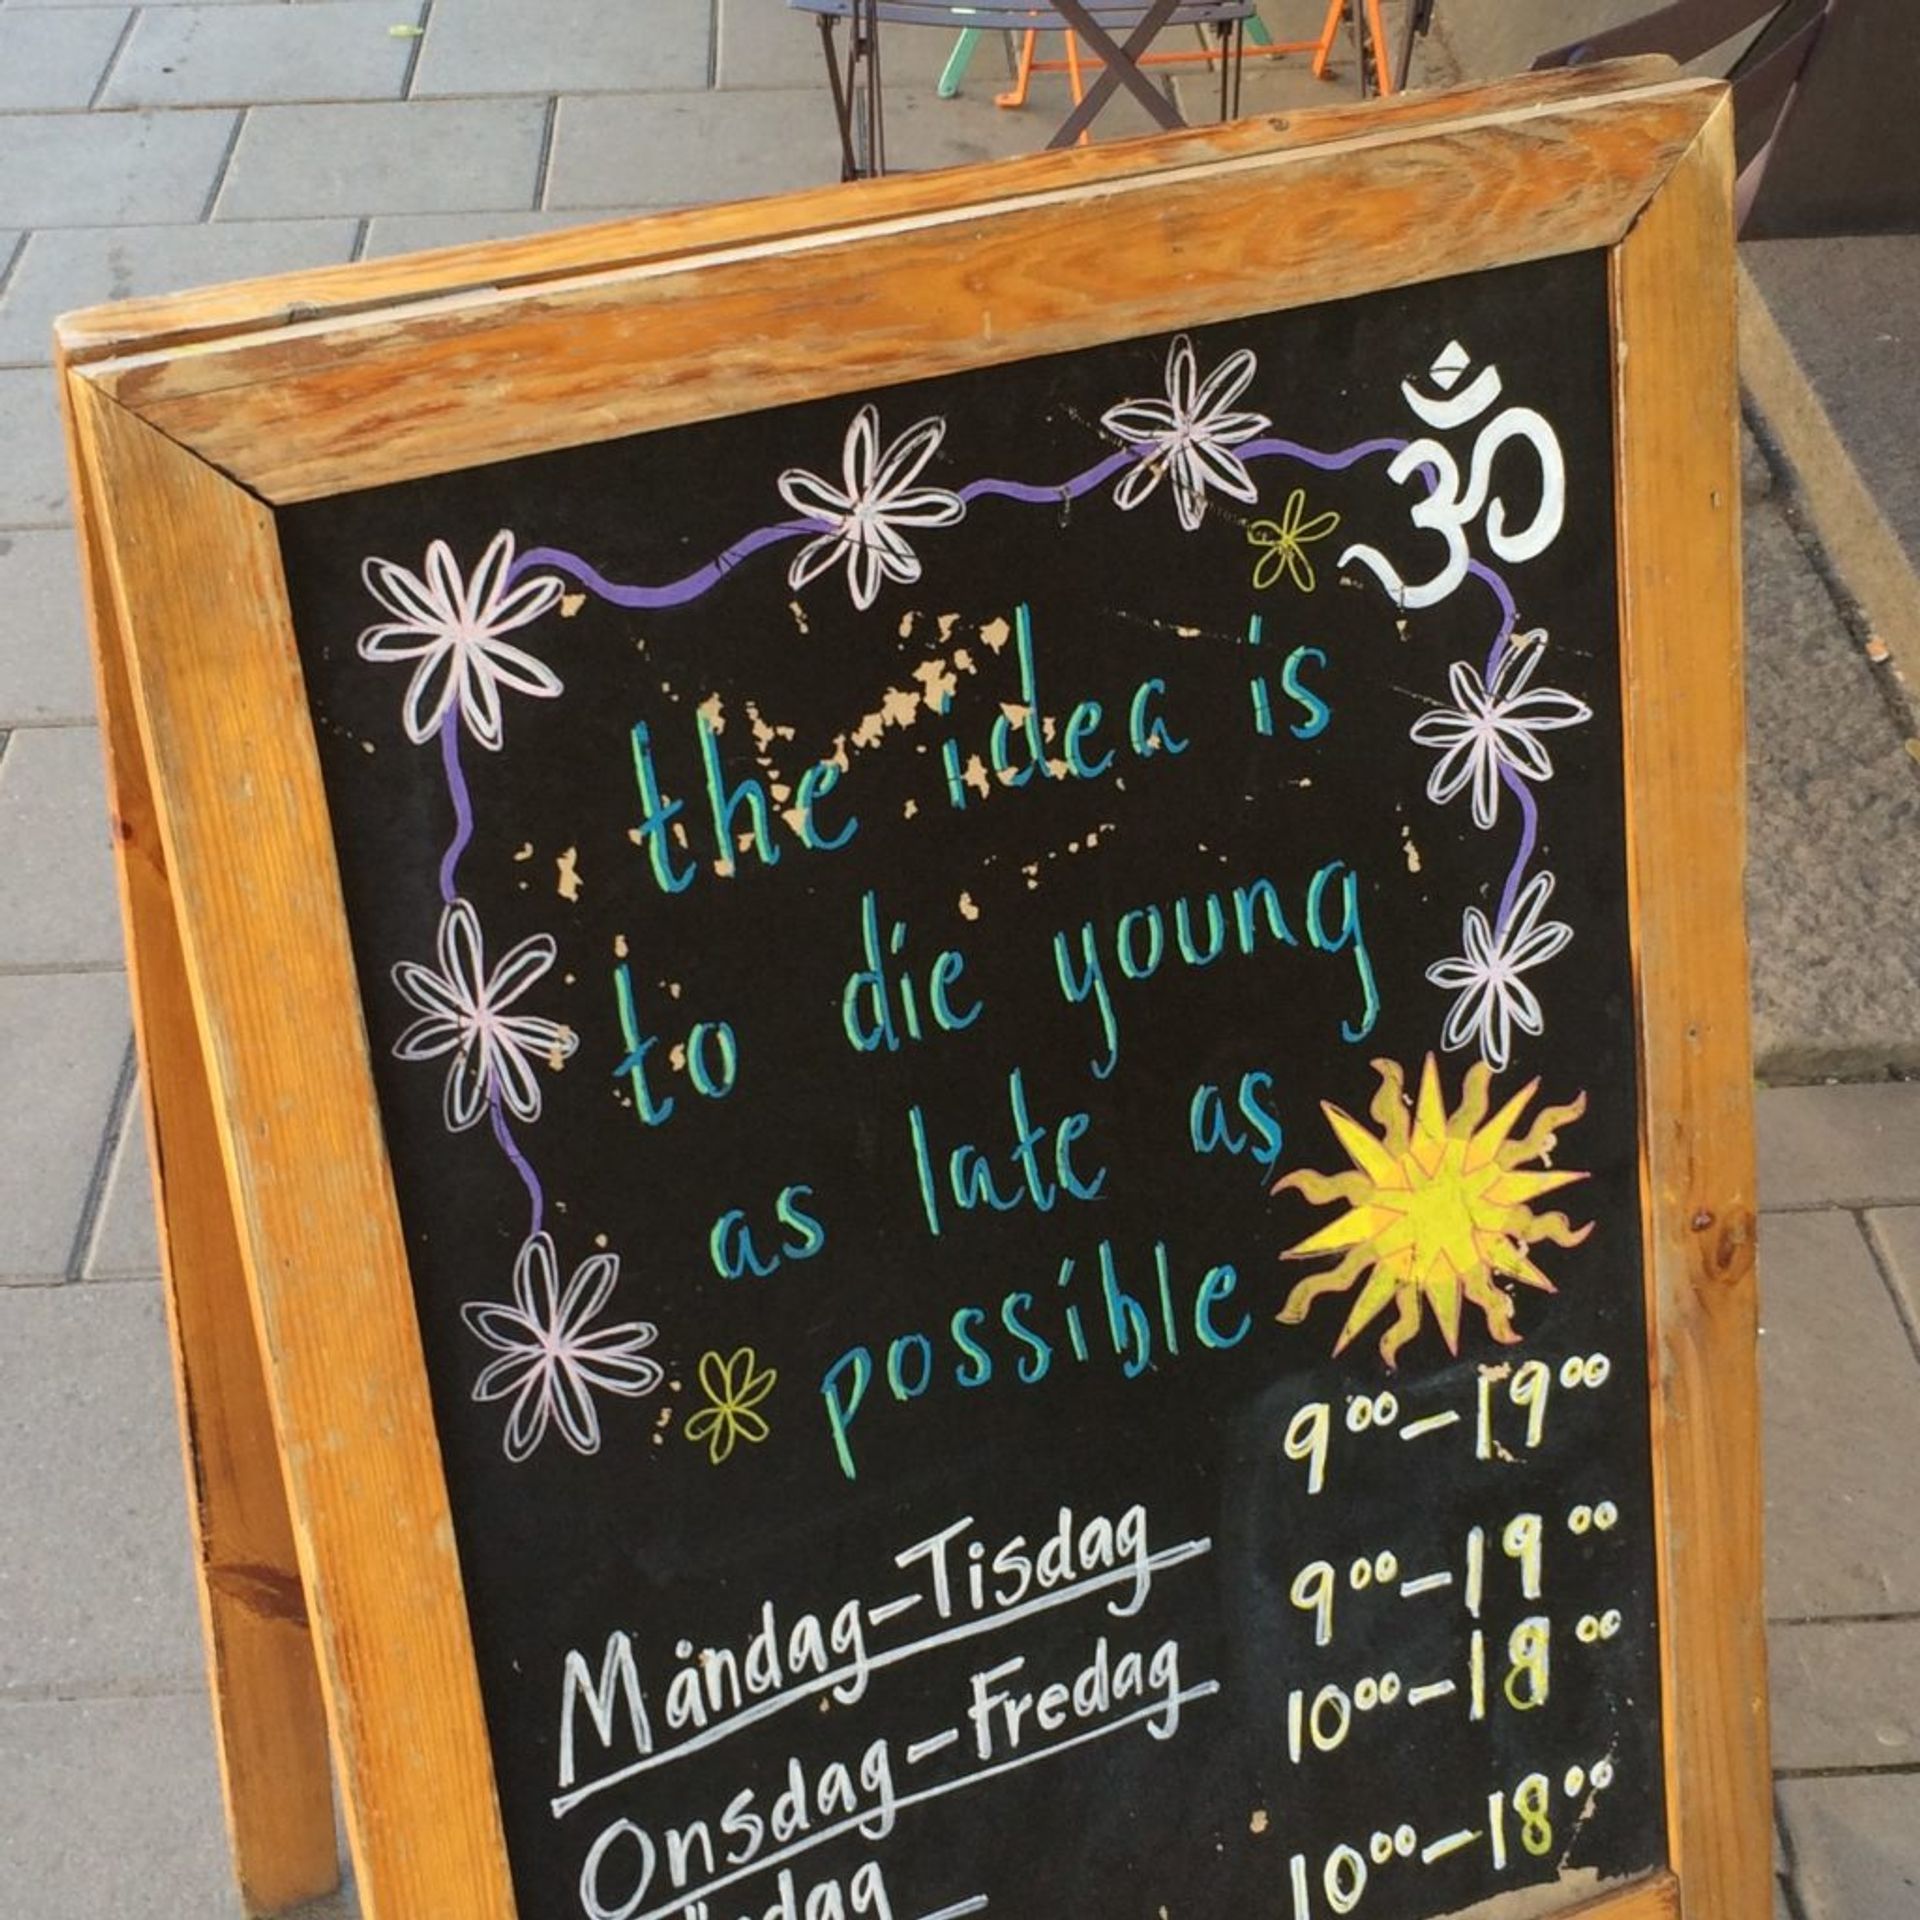 ॐ
the idea is
to die young
as late as
possible
9⁰⁰-19⁰⁰
Måndag-Tisdag 9⁰⁰-19⁰⁰
Onsdag-Fredag 10⁰⁰-18⁰⁰
10⁰⁰-18⁰⁰